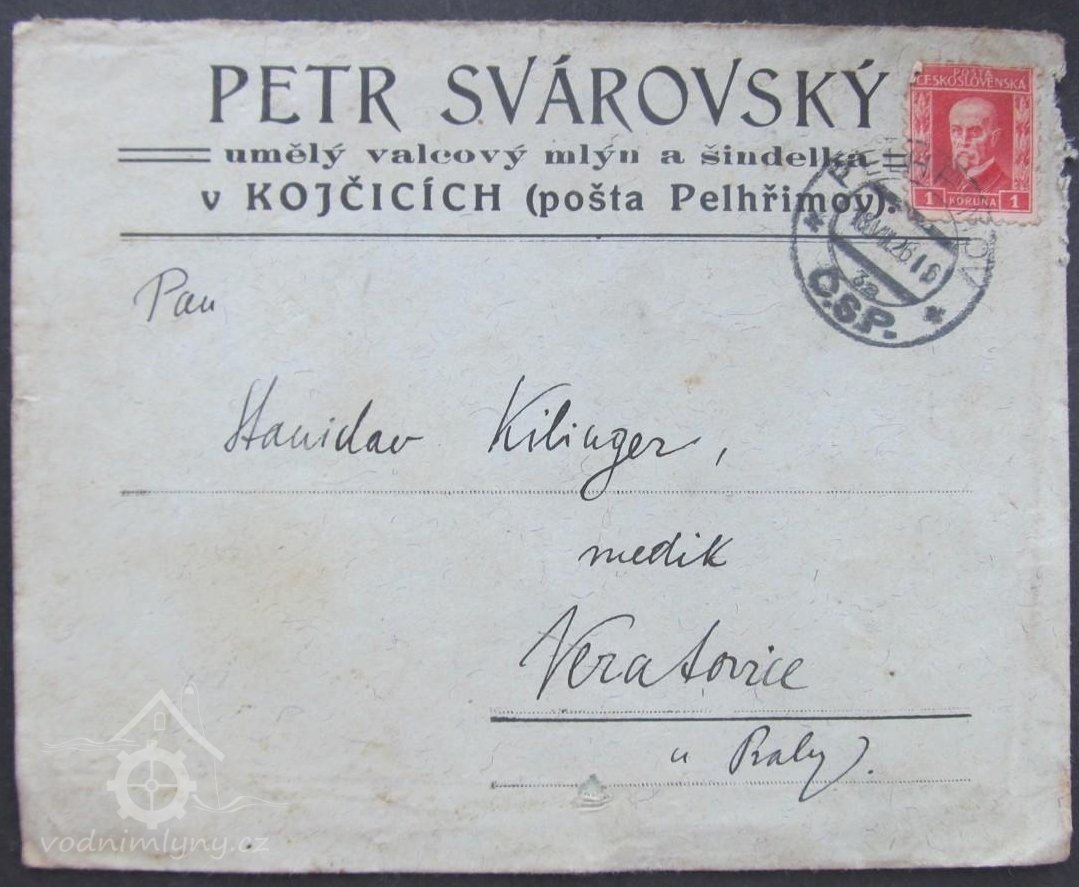 PETR SVÁROVSKÝ
umělý valcový mlýn a šindelka
v KOJČICÍCH (pošta Pelhřimov).
POŠTA
ČESKOSLOVENSKÁ
1 KORUNA 1
PELHŘIMOV
18.VIII.26.16
3a
Č.S.P.
Pan
Stanislav Kilinger,
medik
Neratovice
u Prahy.
vodnimlyny.cz